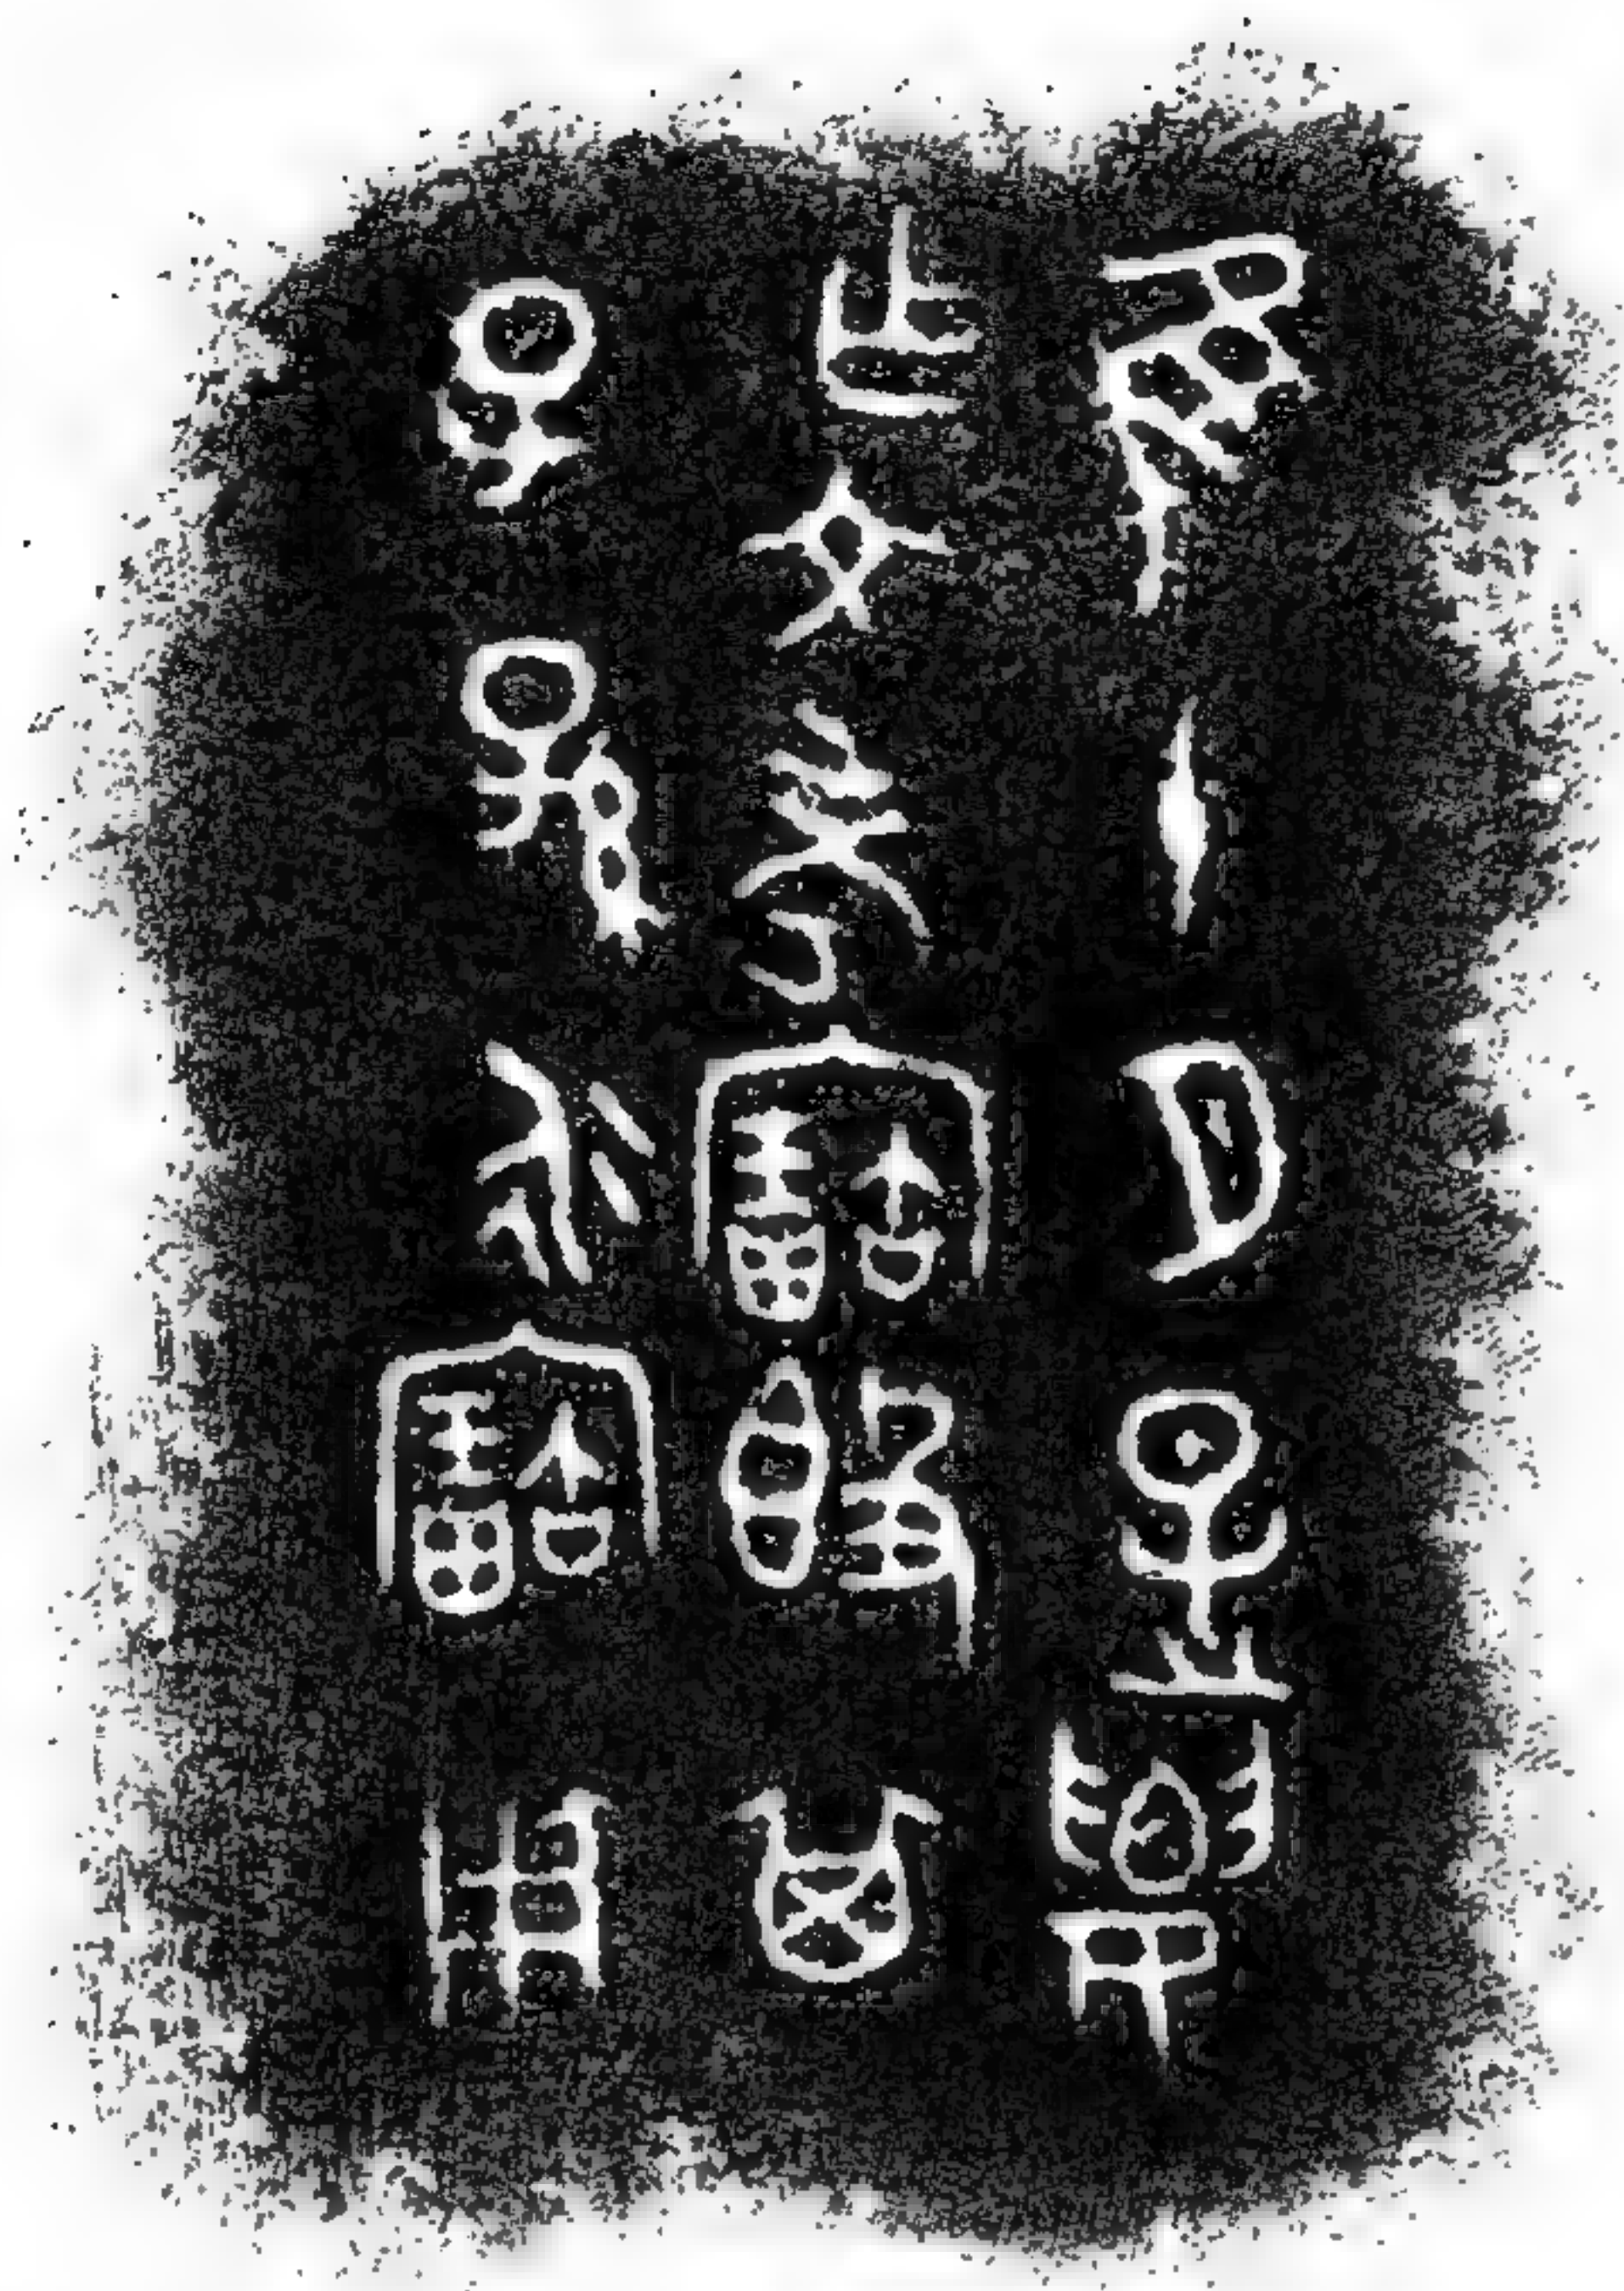 隹十月
乍文考寶簋其
子孫永寶用